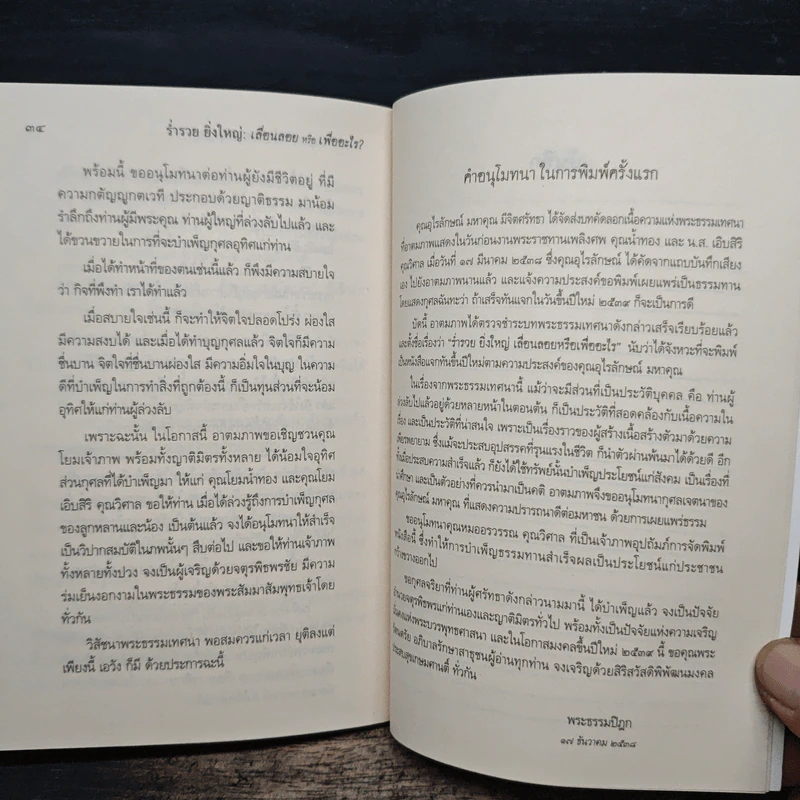 ๓๔
ร่ำรวย ยิ่งใหญ่: เลื่อนลอย หรือ เพื่ออะไร?
พร้อมนี้ ขออนุโมทนาต่อท่านผู้ยังมีชีวิตอยู่ ที่มี
ความกตัญญูกตเวที ประกอบด้วยญาติธรรม มาน้อม
รำลึกถึงท่านผู้มีพระคุณ ท่านผู้ใหญ่ที่ล่วงลับไปแล้ว และ
ได้ขวนขวายในการที่จะบำเพ็ญกุศลอุทิศแก่ท่าน
เมื่อได้ทำหน้าที่ของตนเช่นนี้แล้ว ก็พึงมีความสบายใจ
ว่า กิจที่พึงทำ เราได้ทำแล้ว
เมื่อสบายใจเช่นนี้ ก็จะทำให้จิตใจปลอดโปร่ง ผ่องใส
มีความสงบได้ และเมื่อได้ทำบุญกุศลแล้ว จิตใจก็มีความ
ชื่นบาน จิตใจที่ชื่นบานผ่องใส มีความอิ่มใจในบุญ ในความ
ดีที่บำเพ็ญในการทำสิ่งที่ถูกต้องนี้ ก็เป็นทุนส่วนที่จะน้อม
อุทิศให้แก่ท่านผู้ล่วงลับ
เพราะฉะนั้น ในโอกาสนี้ อาตมภาพขอเชิญชวนคุณ
โยมเจ้าภาพ พร้อมทั้งญาติมิตรทั้งหลาย ได้น้อมใจอุทิศ
ส่วนกุศลที่ได้บำเพ็ญมา ให้แก่ คุณโยมน้ำทอง และคุณโยม
เอิบสิริ คุณวิศาล ขอให้ท่าน เมื่อได้ล่วงรู้ถึงการบำเพ็ญกุศล
ของลูกหลานและน้อง เป็นต้นแล้ว จงได้อนุโมทนาให้สำเร็จ
เป็นวิปากสมบัติในภพนั้นๆ สืบต่อไป และขอให้ท่านเจ้าภาพ
ทั้งหลายทั้งปวง จงเป็นผู้เจริญด้วยจตุรพิธพรชัย มีความ
ร่มเย็นงอกงามในพระธรรมของพระสัมมาสัมพุทธเจ้าโดย
ทั่วกัน
วิสัชนาพระธรรมเทศนา พอสมควรแก่เวลา ยุติลงแต่
เพียงนี้ เอวัง ก็มี ด้วยประการฉะนี้
คำอนุโมทนา ในการพิมพ์ครั้งแรก
คุณอุไรลักษณ์ มหาคุณ มีจิตศรัทธา ได้จัดส่งบทคัดลอกเนื้อความแห่งพระธรรมเทศนา
ที่อาตมภาพแสดงในวันก่อนงานพระราชทานเพลิงศพ คุณน้ำทอง และ น.ส. เอิบสิริ
คุณวิศาล เมื่อวันที่ ๑๗ มีนาคม ๒๕๓๘ ซึ่งคุณอุไรลักษณ์ ได้คัดจากแถบบันทึกเสียง
เอง ไปยังอาตมภาพนานแล้ว และแจ้งความประสงค์ขอพิมพ์เผยแพร่เป็นธรรมทาน
โดยแสดงกุศลฉันทะว่า ถ้าเสร็จทันแจกในวันขึ้นปีใหม่ ๒๕๓๙ ก็จะเป็นการดี
บัดนี้ อาตมภาพได้ตรวจชำระบทพระธรรมเทศนาดังกล่าวเสร็จเรียบร้อยแล้ว
และตั้งชื่อเรื่องว่า "ร่ำรวย ยิ่งใหญ่ เลื่อนลอยหรือเพื่ออะไร" นับว่าได้จังหวะที่จะพิมพ์
เป็นหนังสือแจกทันขึ้นปีใหม่ตามความประสงค์ของคุณอุไรลักษณ์ มหาคุณ
ในเรื่องจากพระธรรมเทศนานี้ แม้ว่าจะมีส่วนที่เป็นประวัติบุคคล คือ ท่านผู้
ล่วงลับไปแล้วอยู่ด้วยหลายหน้าในตอนต้น ก็เป็นประวัติที่สอดคล้องกับเนื้อความใน
เรื่อง และเป็นประวัติที่น่าสนใจ เพราะเป็นเรื่องราวของผู้สร้างเนื้อสร้างตัวมาด้วยความ
เพียรพยายาม ซึ่งแม้จะประสบอุปสรรคที่รุนแรงในชีวิต ก็นำตัวผ่านพ้นมาได้ด้วยดี อีก
ทั้งเมื่อประสบความสำเร็จแล้ว ก็ยังได้ใช้ทรัพย์นั้นบำเพ็ญประโยชน์แก่สังคม เป็นเรื่องที่
น่าศึกษา และเป็นตัวอย่างที่ควรนำมาเป็นคติ อาตมภาพจึงขออนุโมทนากุศลเจตนาของ
คุณอุไรลักษณ์ มหาคุณ ที่แสดงความปรารถนาดีต่อมหาชน ด้วยการเผยแพร่ธรรม
ขออนุโมทนาคุณหมออรวรรณ คุณวิศาล ที่เป็นเจ้าภาพอุปถัมภ์การจัดพิมพ์
หนังสือนี้ ซึ่งทำให้การบำเพ็ญธรรมทานสำเร็จผลเป็นประโยชน์แก่ประชาชน
กว้างขวางออกไป
ขอกุศลจริยาที่ท่านผู้ศรัทธาดังกล่าวนามมานี้ ได้บำเพ็ญแล้ว จงเป็นปัจจัย
อำนวยจตุรพิธพรแก่ท่านเองและญาติมิตรทั่วไป พร้อมทั้งเป็นปัจจัยแห่งความเจริญ
มั่นคงแห่งพระบวรพุทธศาสนา และในโอกาสมงคลขึ้นปีใหม่ ๒๕๓๙ นี้ ขอคุณพระ
รัตนตรัย อภิบาลรักษาสาธุชนผู้อ่านทุกท่าน จงเจริญด้วยสิริสวัสดิ์พิพัฒนมงคล
ประสบสุขเกษมศานติ์ ทั่วกัน
พระธรรมปิฎก
๑๗ ธันวาคม ๒๕๓๘